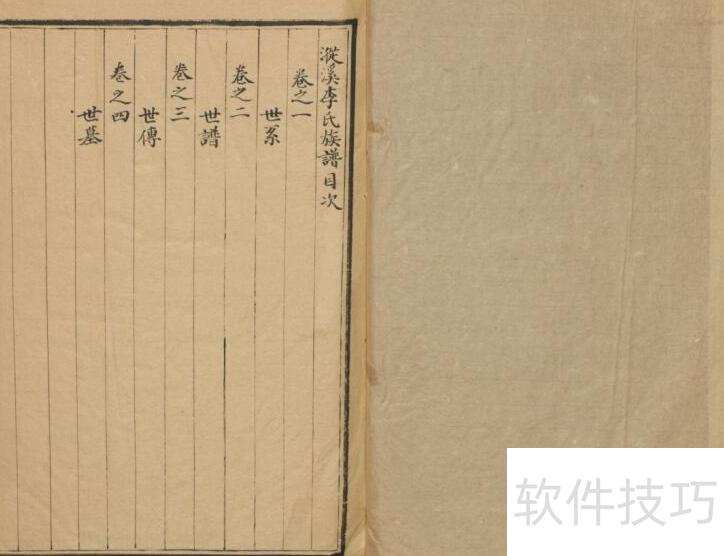 漎溪李氏族譜目次
卷之一
世系
卷之二
世譜
卷之三
世傳
卷之四
世墓
软件技巧